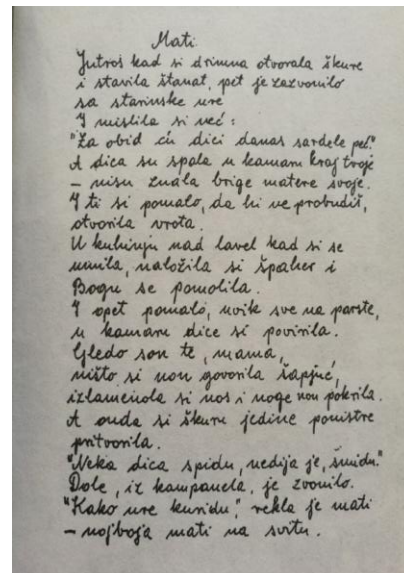 Mati
Jutros kad si drimna otvorala škure
i stavila štanat, pet je zazvonilo
sa starinske ure
I mislila si već:
"Za obid ću dici danas sardele peć."
A dica su spala u kamari kraj tvoje
– nisu znala brige matere svoje.
I ti si pomalo, da hi ne probudiš,
otvorila vrota.
U kuhinju nad lavel kad si se
umila, naložila si špaher i
Bogu se pomolila.
I opet pomalo, uvik sve na parste,
u kamaru dice si povirila.
Gledo son te, mama,
ništo si non govorila šapjuć,
izlamenola si nos i noge non pokrila.
A onda si škure jedine ponistre
pritvorila.
"Neka dica spidu, nedija je, šmidu."
Dole, iz kampanela, je zvonilo.
"Kako ure kuridu," rekla je mati
– nojboja mati na svitu.